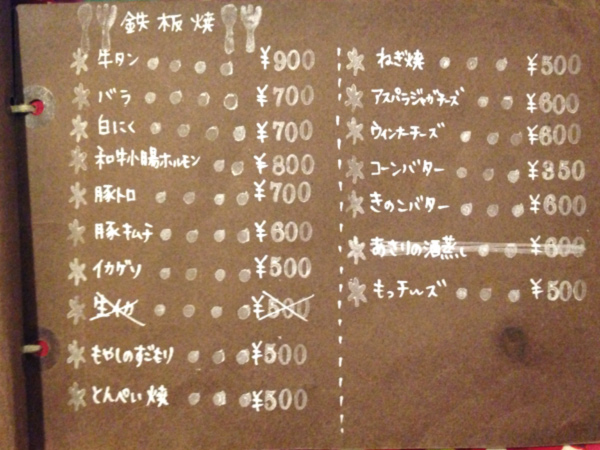 鉄板焼
牛タン ¥900
バラ ¥700
白にく ¥700
和牛小腸ホルモン ¥800
豚トロ ¥700
豚キムチ ¥600
イカゲソ ¥500
生イカ ¥500
もやしのすごもり ¥500
とんぺい焼 ¥500
ねぎ焼 ¥500
アスパラジャガチーズ ¥600
ウインナーチーズ ¥600
コーンバター ¥350
きのこバター ¥600
あさりの酒蒸し ¥600
もっチーズ ¥500